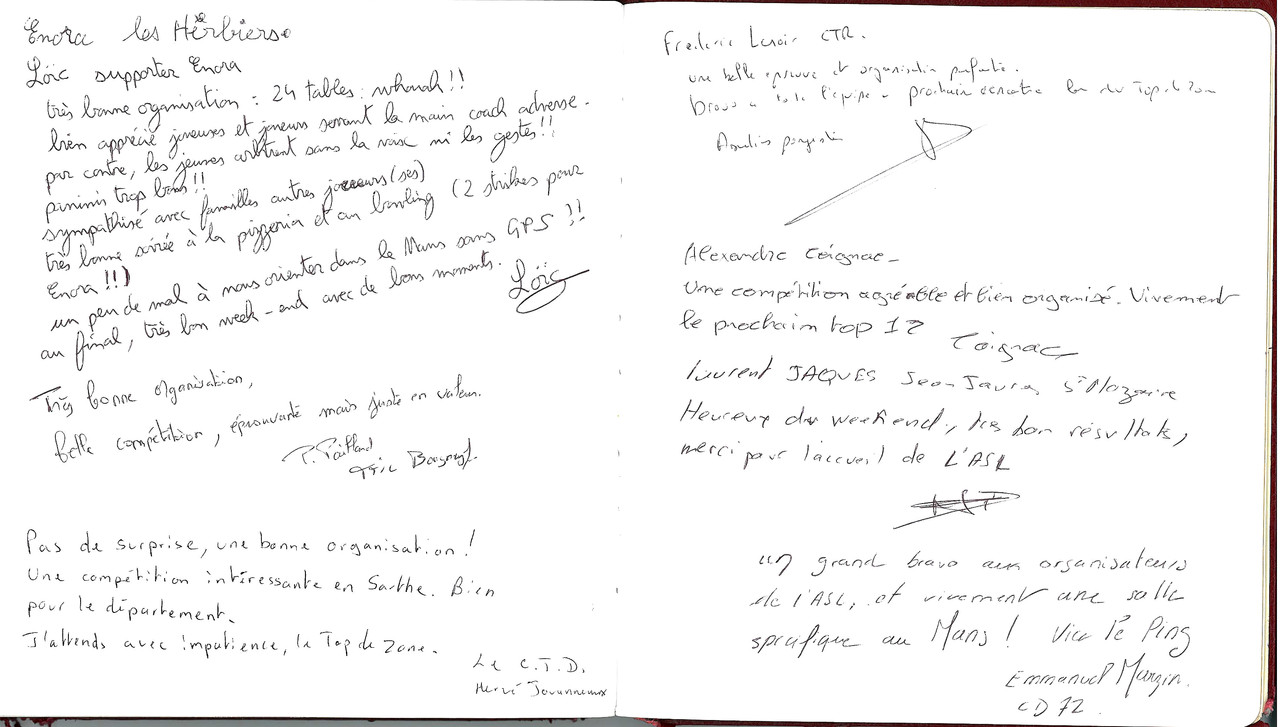 Enora les Herbiers
Loïc supporter Enora
très bonne organisation : 24 tables : whouah !!
bien apprécié joueuses et joueurs serrant la main coach adverse.
par contre, les jeunes arbitrent sans la voix ni les gestes !!
paninis trop bons !!
sympathisé avec familles autres joueurs (ses)
très bonne soirée à la pizzeria et au bowling (2 strikes pour
Enora !!)
un peu de mal à nous orienter dans le Mans sans GPS !!
au final, très bon week-end avec de bons moments.
Loïc
Très bonne organisation,
Belle compétition, éprouvante mais juste en valeur.
P.
Eric
Pas de surprise, une bonne organisation !
Une compétition intéressante en Sarthe. Bien
pour le département.
J'attends avec impatience, le Top de Zone.
Le C.T.D.
Hervé Jouanneaux
Frederic CTR.
une belle épreuve et organisation parfaite.
bravo à toute l'équipe prochain lors du Top de Zone
Alexandre Coignac -
Une compétition agréable et bien organisé. Vivement
le prochain top 12
Coignac
Laurent JAQUES Jean Jaures St Nazaire
Heureux du weekend, très bon résultats,
merci pour l'accueil de L'ASL
un grand bravo aux organisateurs
de l'ASL, et vivement une salle
spécifique au Mans ! Vive le Ping
Emmanuel
CD 72.